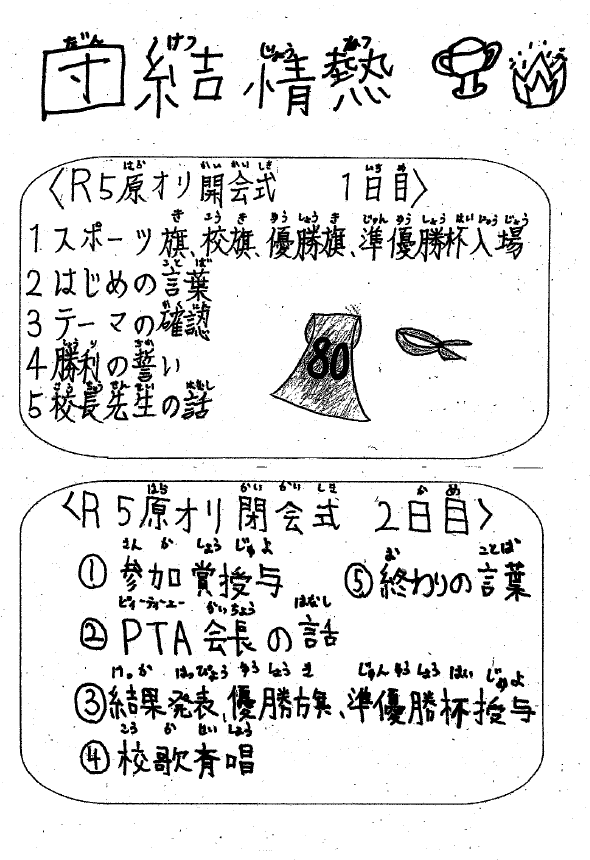 団結情熱
〈R5原オリ開会式 1日目〉
1 スポーツ旗、校旗、優勝旗、準優勝杯入場
2 はじめの言葉
3 テーマの確認
4 勝利の誓い
5 校長先生の話
80
〈R5原オリ閉会式 2日目〉
① 参加賞授与
⑤ 終わりの言葉
② PTA会長の話
③ 結果発表、優勝旗、準優勝杯授与
④ 校歌斉唱